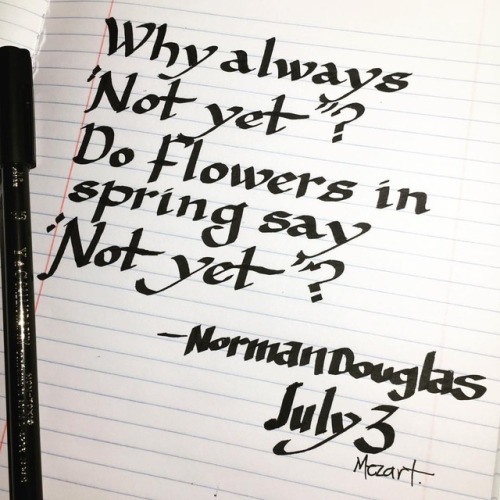 Why always
"Not yet"?
Do flowers in
spring say
"Not yet"?
-Norman Douglas
July 3
Mozart.